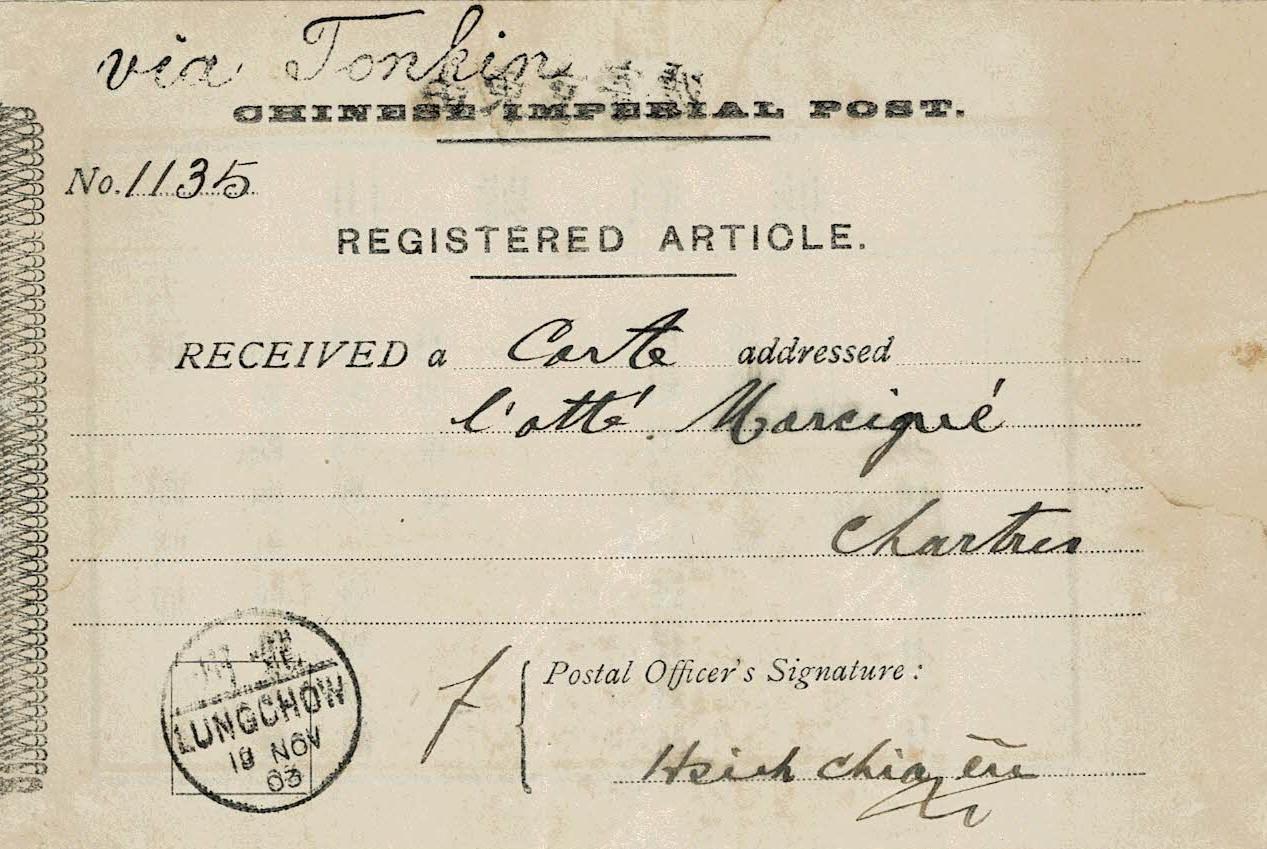 via Tonkin
CHINESE IMPERIAL POST.
No. 1135
REGISTERED ARTICLE.
RECEIVED a Carte addressed
l'abbé Marcigué
Chartres
LUNGCHOW
NOV
03
Postal Officer's Signature:
Hsieh Chia